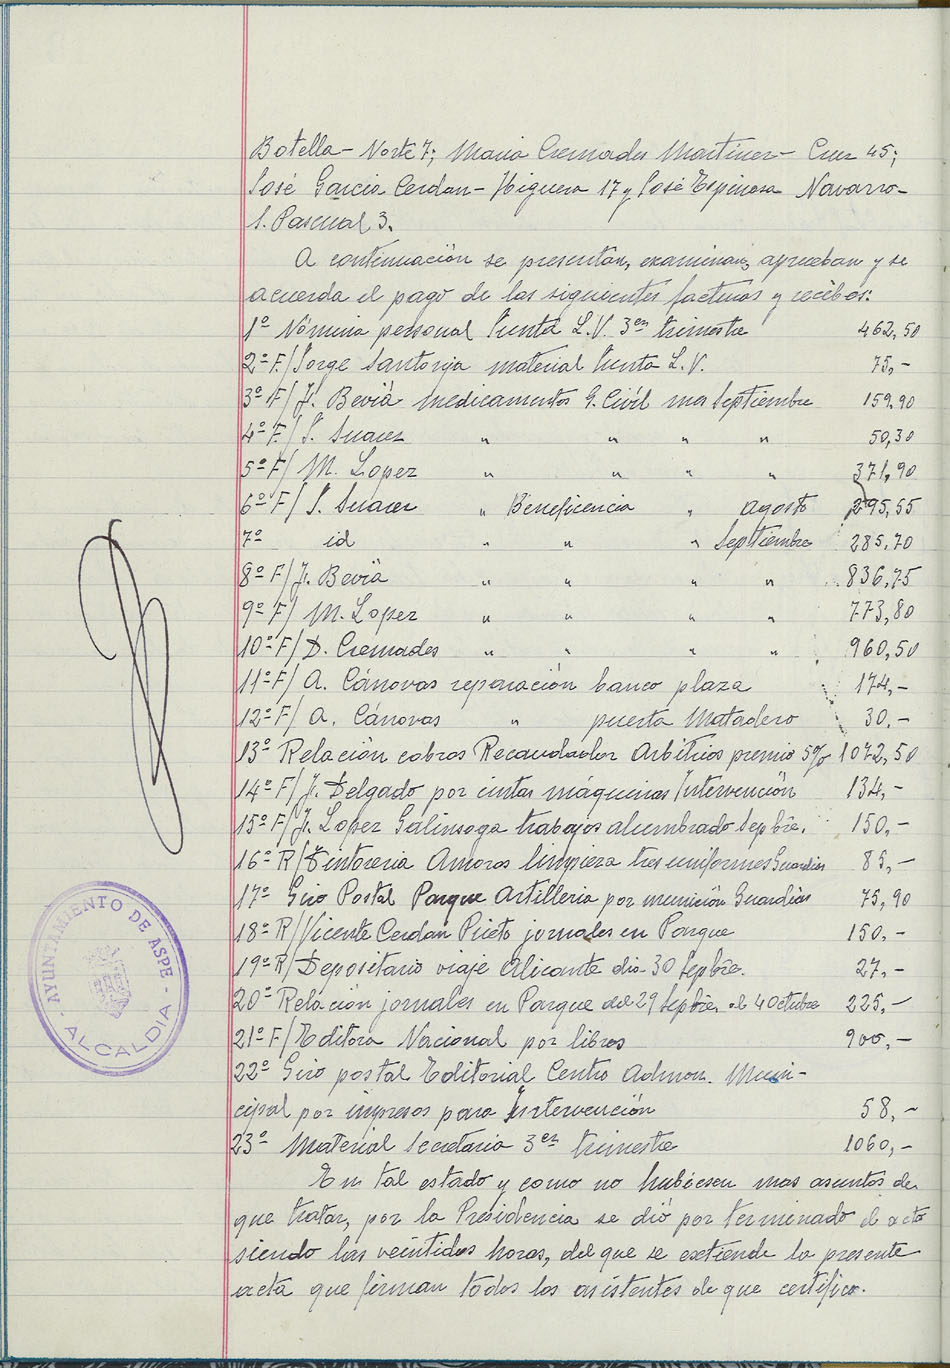 Botella - Norte 7; Maria Cremades Martinez - Cruz 45;
José Garcia Cerdan - Higuera 17 y José Espinosa Navarro -
S. Pascual 3.
A continuación se presentan, examinan, aprueban y se
acuerda el pago de las siguientes facturas y recibos:
1º Nómina personal Junta L.V. 3er trimestre 462,50
2º F/ Jorge Santonja material Junta L.V. 75,-
3º F/ J. Beviá medicamentos G. Civil mes Septiembre 159,90
4º F/ J. Suarez " " " " 50,30
5º F/ M. Lopez " " " " 371,90
6º F/ J. Suarez " Beneficencia " agosto 295,55
7º id " " " Septiembre 285,70
8º F/ J. Beviá " " " " 836,75
9º F/ M. Lopez " " " " 773,80
10º F/ D. Cremades " " " " 960,50
11º F/ A. Cánovas reparación banco plaza 174,-
12º F/ A. Cánovas " puerta Matadero 30.-
13º Relación cobros Recaudador Arbitrios premio 5% 1072,50
14º F/ J. Delgado por cintas máquinas Intervención 134,-
15º F/ J. Lopez Galinsoga trabajos alumbrado Sepbre. 150,-
16º R/ Tintoreria Amoros limpieza tres uniformes Guardias 85,-
17º Giro Postal Parque Artilleria por munición Guardias 75,90
18º R/ Vicente Cerdan Prieto jornales en Parque 150,-
19º R/ Depositario viaje Alicante dia 30 Sepbre. 27,-
20º Relación jornales en Parque del 29 Sepbre. al 4 Octubre 225,-
21º F/ Editora Nacional por libros 900,-
22º Giro postal Editorial Centro Admon. Muni-
cipal por impresos para Intervención 58,-
23º Material Secretaria 3er trimestre 1060,-
En tal estado y como no hubiesen mas asuntos de
que tratar, por la Presidencia se dió por terminado el acto
siendo las veintidos horas, del que se extiende la presente
acta que firman todos los asistentes de que certifico.
AYUNTAMIENTO DE ASPE
- ALCALDIA -